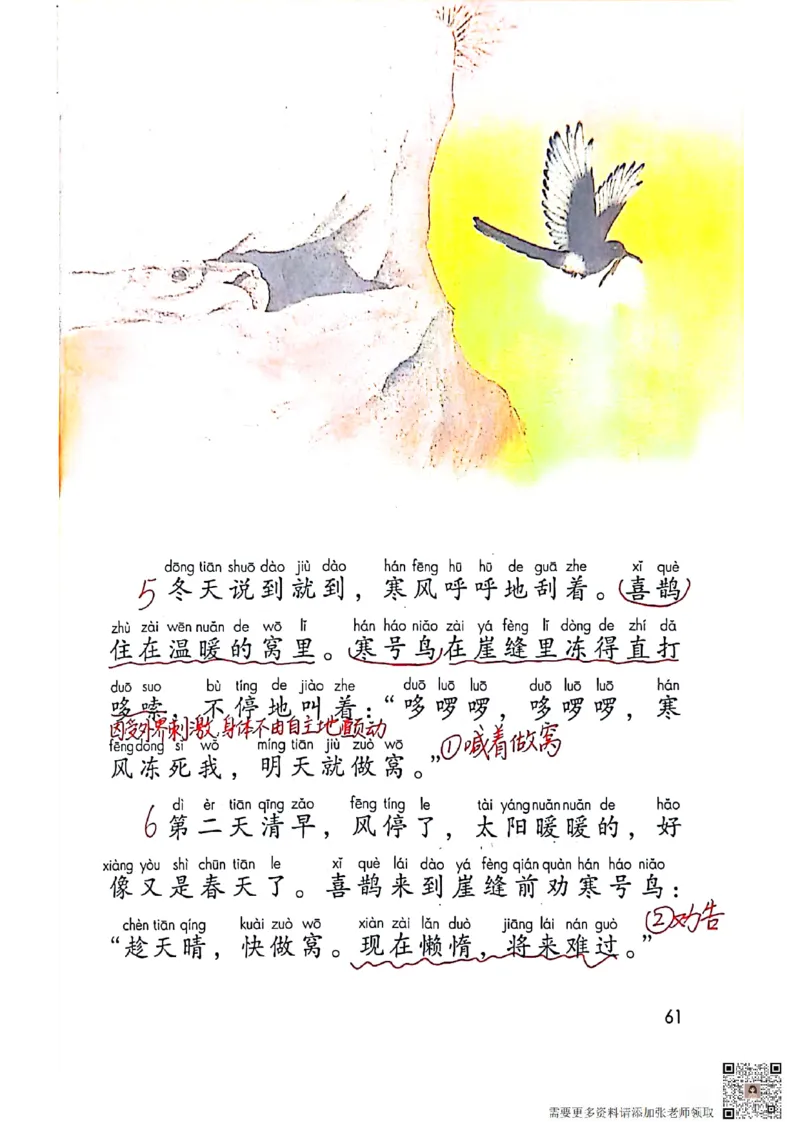 dōng tiān shuō dào jiù dào hán fēng hū hū de guā zhe xǐ què
5 冬天说到就到，寒风呼呼地刮着。喜鹊
zhù zài wēn nuǎn de wō lǐ hán háo niǎo zài yá fèng lǐ dòng de zhí dǎ
住在温暖的窝里。寒号鸟在崖缝里冻得直打
duō suo bù tíng de jiào zhe duō luō luō duō luō luō hán
哆嗦，不停地叫着：“哆啰啰，哆啰啰，寒
因受外界刺激，身体不由自主地颤动
fēng dòng sǐ wǒ míng tiān jiù zuò wō
风冻死我，明天就做窝。”①喊着做窝
dì èr tiān qīng zǎo fēng tíng le tài yáng nuǎn nuǎn de hǎo
6 第二天清早，风停了，太阳暖暖的，好
xiàng yòu shì chūn tiān le xǐ què lái dào yá fèng qián quàn hán háo niǎo
像又是春天了。喜鹊来到崖缝前劝寒号鸟：
chèn tiān qíng kuài zuò wō xiàn zài lǎn duò jiāng lái nán guò
“趁天晴，快做窝。现在懒惰，将来难过。”
②劝告
61
需要更多资料请添加张老师领取